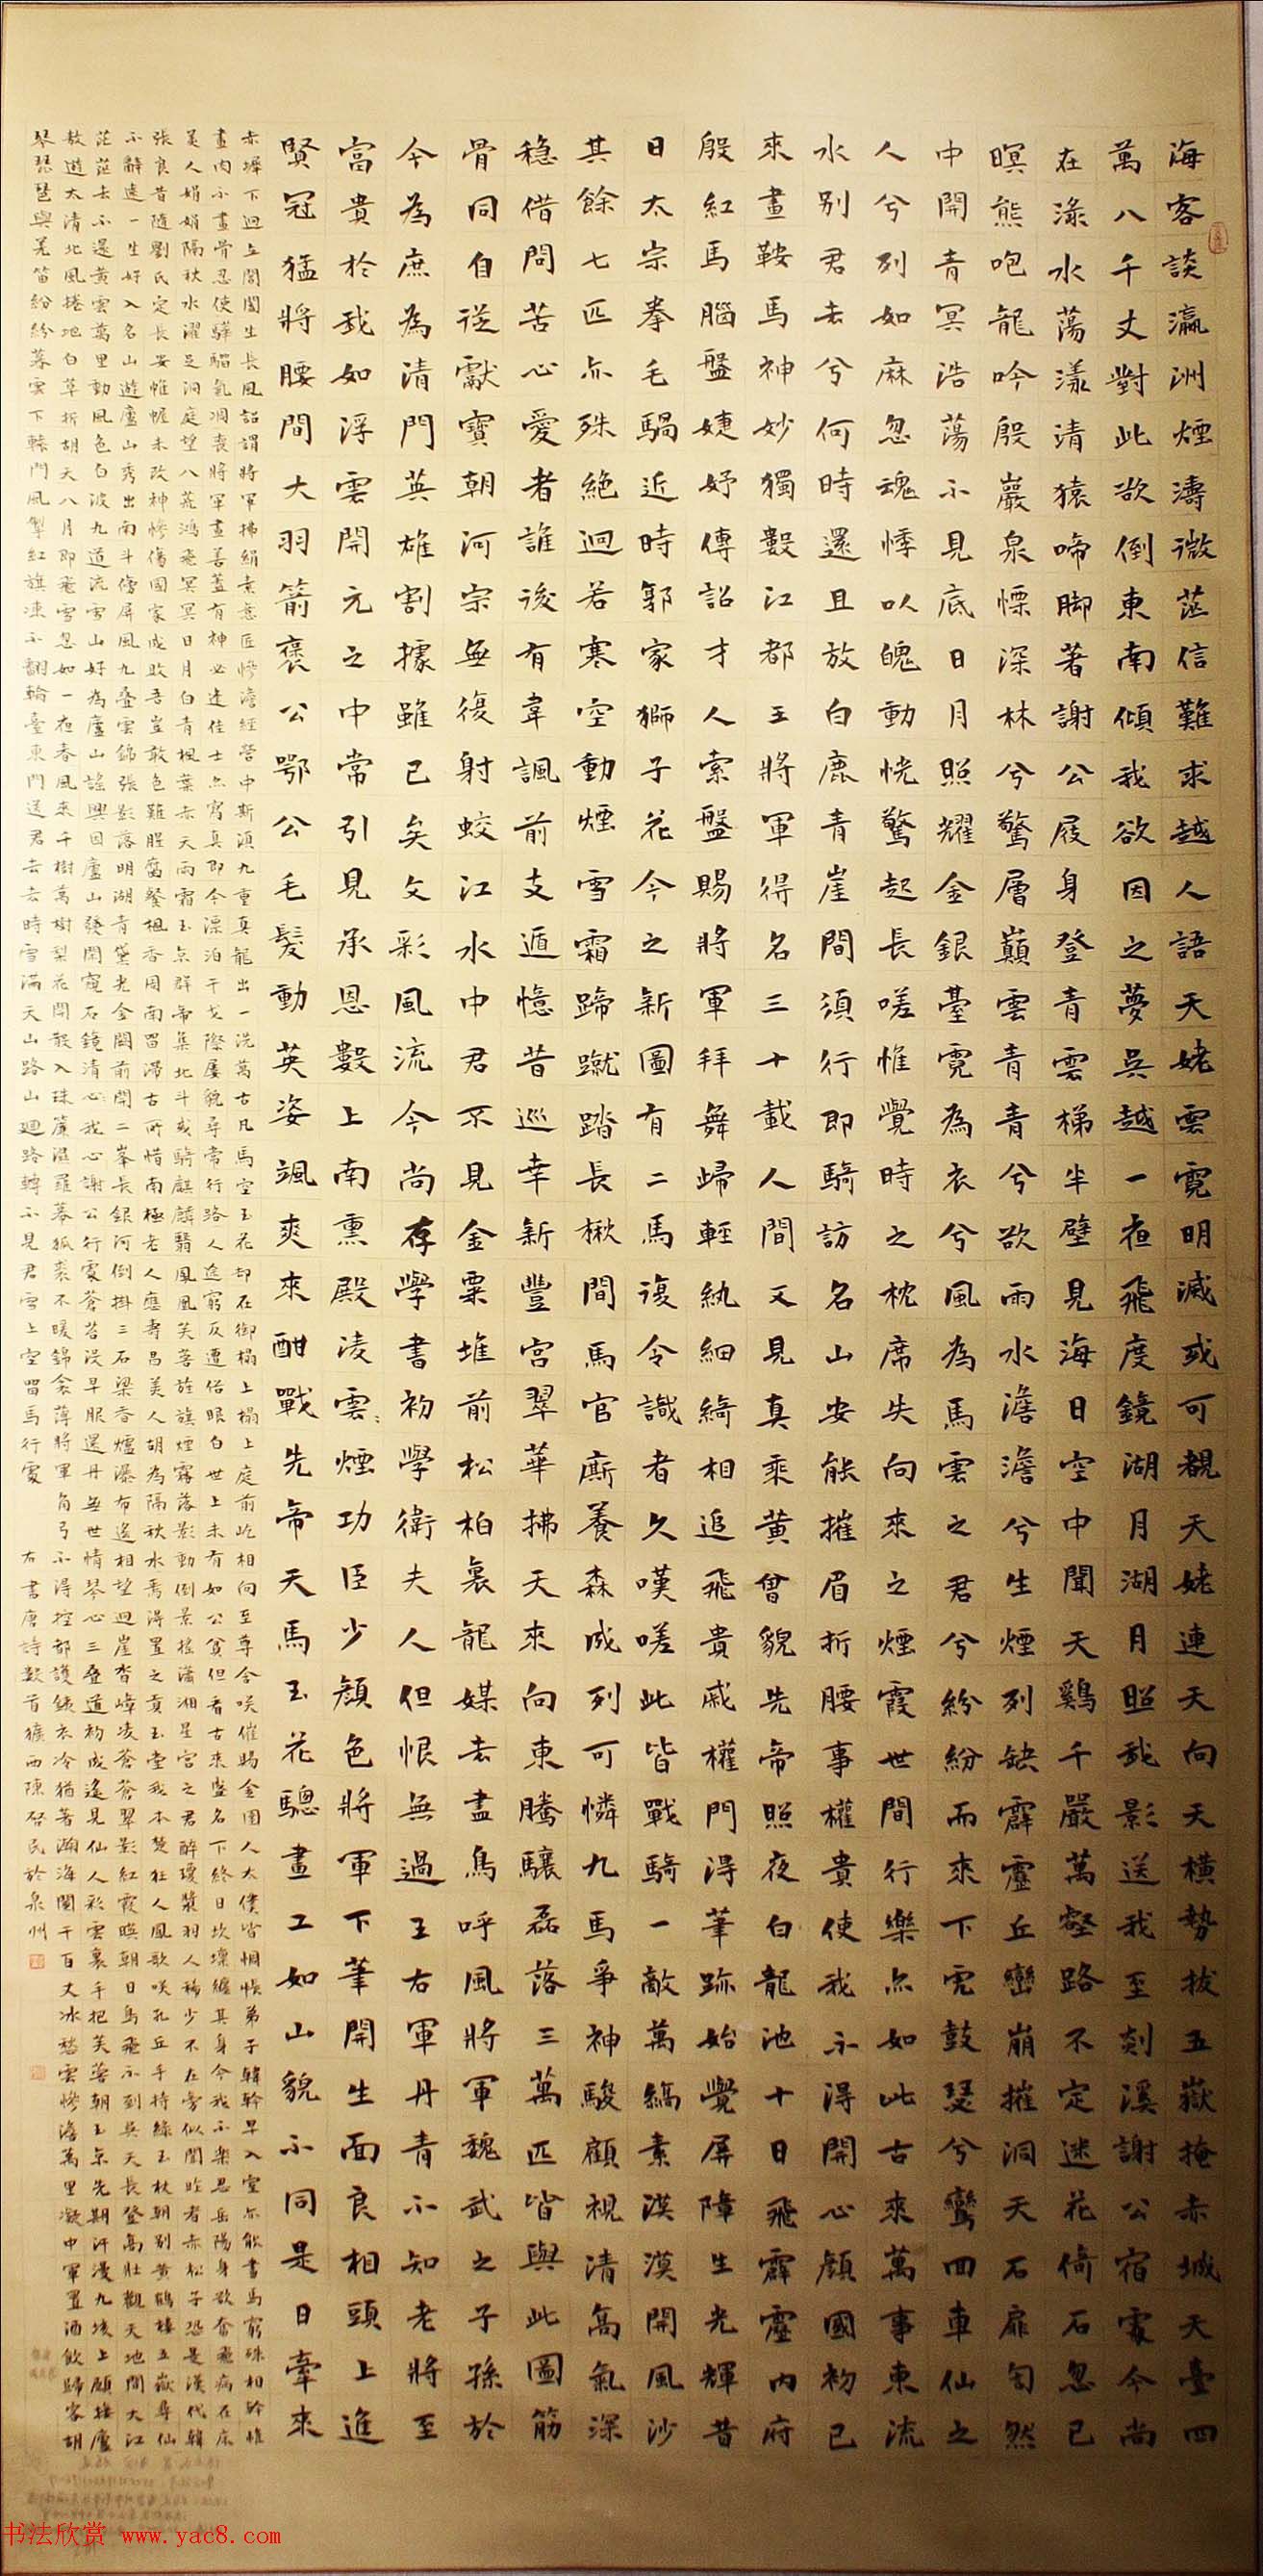 海客談瀛洲煙濤微茫信難求越人語天姥雲霓明滅或可覩天姥連天向天橫勢拔五嶽掩赤城天臺四
萬八千丈對此欲倒東南傾我欲因之夢吳越一夜飛度鏡湖月湖月照我影送我至剡溪謝公宿處今尚
在淥水蕩漾清猿啼脚著謝公屐身登青雲梯半壁見海日空中聞天鷄千嚴萬壑路不定迷花倚石忽已
暝熊咆龍吟殷巖泉慄深林兮驚層巔雲青青兮欲雨水澹澹兮生煙列缺霹靂丘巒崩摧洞天石扉訇然
中開青冥浩蕩不見底日月照耀金銀臺霓為衣兮風為馬雲之君兮紛紛而來下虎鼓瑟兮鸞回車仙之
人兮列如麻忽魂悸以魄動恍驚起長嗟惟覺時之枕席失向來之煙霞世間行樂亦如此古來萬事東流
水別君去兮何時還且放白鹿青崖間須行即騎訪名山安能摧眉折腰事權貴使我不得開心顏國初已
來畫鞍馬神妙獨數江都王將軍得名三十載人間又見真乘黃曾貌先帝照夜白龍池十日飛霹靂內府
殷紅馬腦盤婕妤傳詔才人索盤賜將軍拜舞歸輕紈細綺相追飛貴戚權門得筆跡始覺屏障生光輝昔
日太宗拳毛騧近時郭家獅子花今之新圖有二馬復令識者久嘆嗟此皆戰騎一敵萬縞素漠漠開風沙
其餘七匹亦殊絕迥若寒空動煙雪霜蹄蹴踏長楸間馬官廝養森成列可憐九馬爭神駿顧視清高氣深
穩借問苦心愛者誰後有韋諷前支遁憶昔巡幸新豐宮翠華拂天來向東騰驤磊落三萬匹皆與此圖筋
骨同自從獻寶朝河宗無復射蛟江水中君不見金粟堆前松柏裏龍媒去盡鳥呼風將軍魏武之子孫於
今為庶為清門英雄割據雖已矣文彩風流今尚存學書初學衛夫人但恨無過王右軍丹青不知老將至
富貴於我如浮雲開元之中常引見承恩數上南熏殿凌雲煙功臣少顏色將軍下筆開生面良相頭上進
賢冠猛將腰間大羽箭褒公鄂公毛髮動英姿颯爽來酣戰先帝天馬玉花驄畫工如山貌不同是日牽來
赤墀下迥立閶闔生長風詔謂將軍拂絹素意匠慘澹經營中斯須九重真龍出一洗萬古凡馬空玉花却在御榻上榻上庭前屹相向至尊含咲催賜金圉人太僕皆惆悵弟子韓幹早入室亦能畫馬窮殊相幹惟
畫肉不畫骨忍使驊騮氣凋喪將軍畫善蓋有神必逢佳士亦寫真即今漂泊干戈際屢貌尋常行路人途窮反遭俗眼白世上未有如公貧但看古來盛名下終日坎壈纏其身今我不樂思岳陽身欲奮飛病在床
美人娟娟隔秋水濯足洞庭望八荒鴻飛冥冥日月白青楓葉赤天雨霜玉京群帝集北斗或騎麒麟翳鳳凰芙蓉旌旗煙霧落影動倒景搖瀟湘星宮之君醉瓊漿羽人稀少不在旁似聞昨者赤松子恐是漢代韓
張良昔隨劉氏定長安帷幄未改神慘傷國家成敗吾豈敢色難腥腐餐楓香周南留滯古所惜南極老人應壽昌美人胡為隔秋水焉得置之貢玉堂我本楚狂人鳳歌咲孔丘手持綠玉杖朝別黃鶴樓五嶽尋仙
不辭遠一生好入名山遊廬山秀出南斗傍屏風九疊雲錦張影落明湖青黛光金闕前開二峯長銀河倒掛三石梁香爐瀑布遙相望迴崖沓嶂凌蒼蒼翠影紅霞暎朝日鳥飛不到吳天長登高壯觀天地間大江
茫茫去不還黃雲萬里動風色白波九道流雪山好為廬山謠興因廬山發閑窺石鏡清心我心謝公行處蒼苔沒早服還丹無世情琴心三疊道初成遙見仙人彩雲裏手把芙蓉朝玉京先期汗漫九垓上願接盧
敖遊太清北風捲地白草折胡天八月即飛雪忽如一夜春風來千樹萬樹梨花開散入珠簾濕羅幕狐裘不暖錦衾薄將軍角弓不得控都護鐵衣冷猶著瀚海闌干百丈冰愁雲慘澹萬里凝中軍置酒飲歸客胡
琴琵琶與羌笛紛紛暮雪下轅門風掣紅旗凍不翻輪臺東門送君去去時雪滿天山路山迴路轉不見君雪上空留馬行處 右書唐詩數首 西陳啓民於泉州
书法欣赏 www.yac8.com